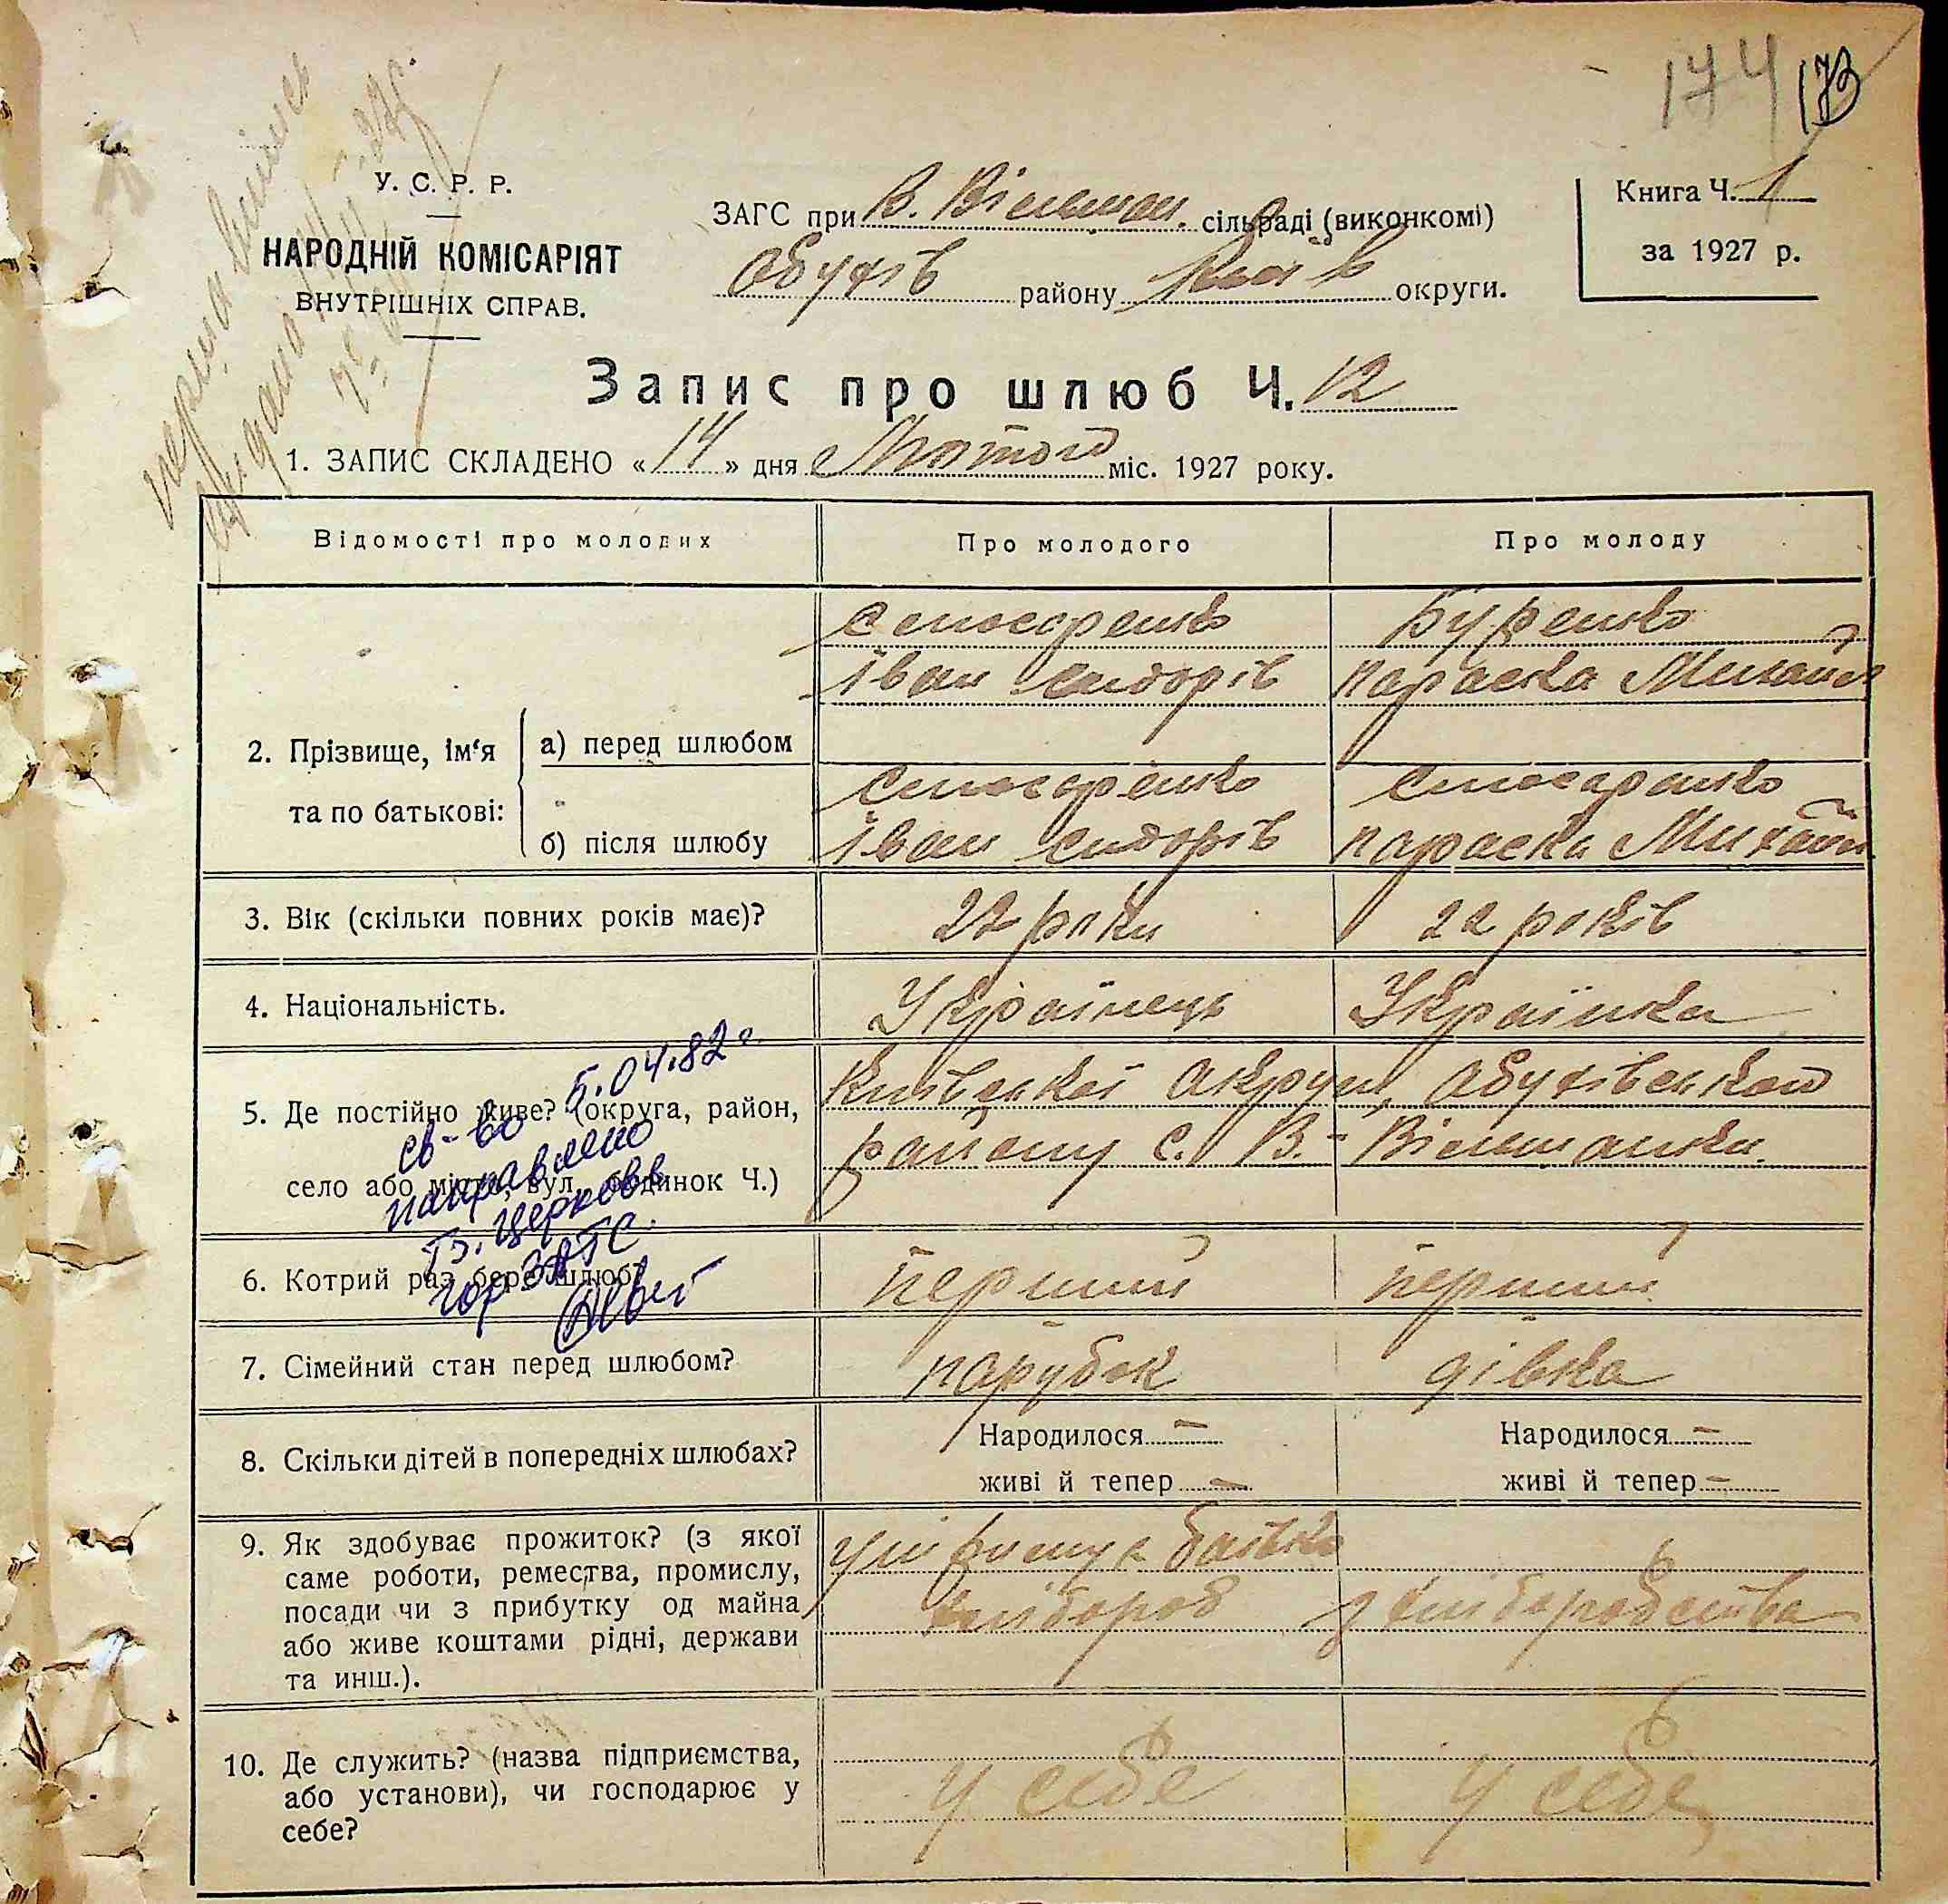 174 173
перша випись
видана
У. С. Р. Р.
НАРОДНІЙ КОМІСАРІЯТ
ВНУТРІШНІХ СПРАВ.
ЗАГС при В. Вільшан. сільраді (виконкомі)
Обухів району Київ округи.
Книга Ч. 1
за 1927 р.
Запис про шлюб Ч. 12
1. ЗАПИС СКЛАДЕНО « 14 » дня Лютого міс. 1927 року.
Відомості про молодих Про молодого Про молоду
Слюсаренко Буренко
Іван Сидорів Параска Михайл
2. Прізвище, ім‘я та по батькові:
а) перед шлюбом
Слюсаренко Слюсаренко
б) після шлюбу Іван Сидорів Параска Михайл
3. Вік (скільки повних років має)? 22 роки 22 років
4. Національність. Українець Українка
5. Де постійно живе? (округа, район, Київської округи, Обухівского
село або місто, вул., будинок Ч.) району с. В.-Вільшанки.
5.04.82 г.
св-во
направлено
Б. Церковв.
гор ЗАГС.
6. Котрий раз бере шлюб? Перший перший
7. Сімейний стан перед шлюбом? парубок дівка
8. Скільки дітей в попередніх шлюбах? Народилося – Народилося –
живі й тепер – живі й тепер –
9. Як здобуває прожиток? (з якої
саме роботи, ремества, промислу,
посади чи з прибутку од майна
або живе коштами рідні, держави
та инш.).
батька
хлібороб з хліборобства
10. Де служить? (назва підприємства,
або установи), чи господарює у
себе?
у себе у себе